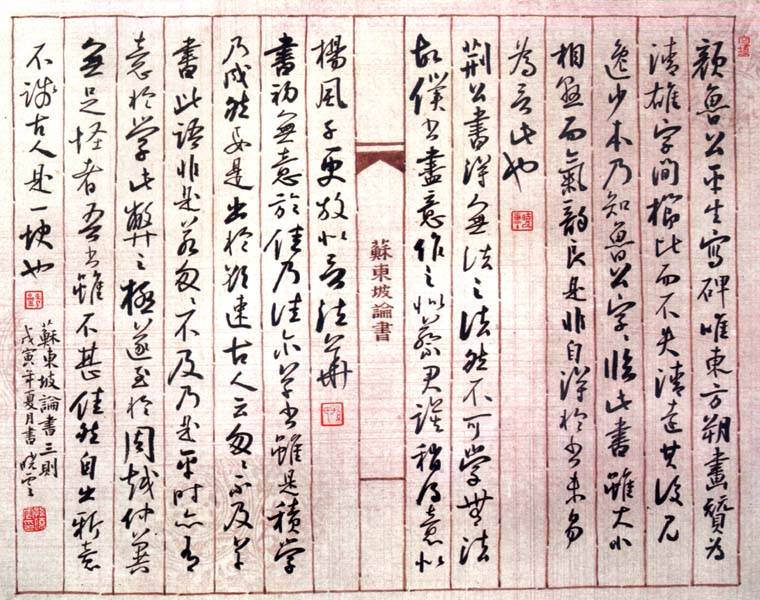 顏魯公平生寫碑唯東方朔畫贊為
清雄字間櫛比而不失清遠其後見
逸少本乃知魯公字字臨此書雖大小
相懸而氣韻良是非自得於書未易
為言此也
荊公書得無法之法然不可學無法
故僕書盡意作之似蔡君謨稍得意似
蘇東坡論書
楊風子更放似言法華
書初無意於佳乃佳尒草書雖是積學
乃成然要是出於欲速古人云匆匆不及草
書此語非是若匆匆不及乃是平時亦有
意於學此弊之極遂至於周越仲翼
無足怪者吾書雖不甚佳然自出新意
不踐古人是一快也
蘇東坡論書三則
戊寅年夏月書 曉雲